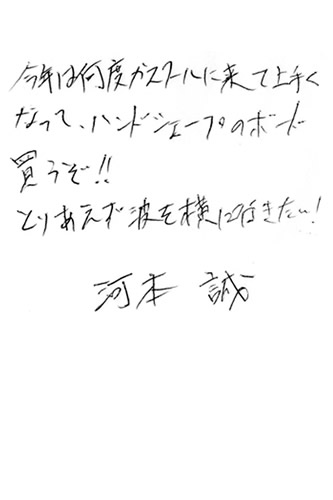 今年は何度かスクールに来て上手く
なって、ハンドシェープのボード
買うぞ!!
とりあえず波を横に行きたい!
河本 誠